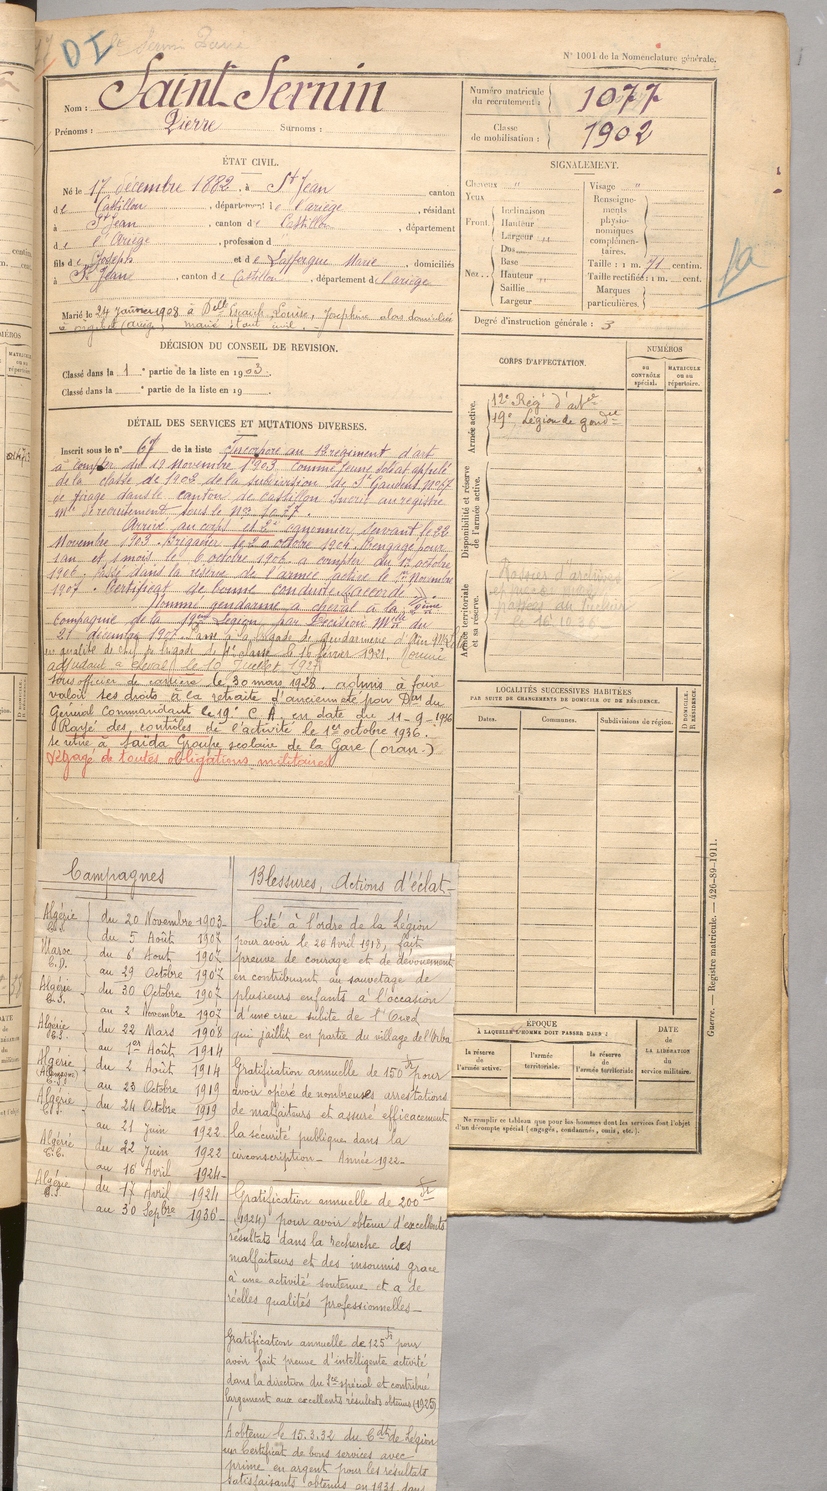 D I
N° 1001 de la Nomenclature générale.
Nom : Saint Sernin
Prénoms : Pierre Surnoms :
Numéro matricule du recrutement : 1077
Classe de mobilisation : 1902
ÉTAT CIVIL.
Né le 17 décembre 1882, à St Jean canton
de Castillon, département de l'ariège, résidant
à St Jean, canton de Castillon, département
de l'Ariège, profession d
fils de Joseph et de Laffargue Marie, domiciliés
à St Jean, canton de Castillon, département de l'ariège
Marié le 24 janvier 1908 à Delle Louise, Joséphine alors domiciliée
SIGNALEMENT.
Cheveux "
Yeux
Front
Inclinaison
Hauteur
Largeur
Nez
Dos
Base
Hauteur
Saillie
Largeur
Visage "
Renseignements physionomiques complémentaires.
Taille : 1 m. 71 centim.
Taille rectifiée : 1 m. cent.
Marques particulières.
Degré d'instruction générale : 3
DÉCISION DU CONSEIL DE REVISION.
Classé dans la 1e partie de la liste en 1903.
Classé dans la e partie de la liste en 19
DÉTAIL DES SERVICES ET MUTATIONS DIVERSES.
Inscrit sous le n° 67 de la liste Incorporé au régiment d'art
à compter du Novembre 1903 comme jeune soldat appelé
de la classe de 1902 de la subdivision de St Gaudens N° 67
de tirage dans le canton de Castillon Inscrit au registre
Mle de recrutement sous le N°
Arrivé au corps et 2e canonnier servant le 22
Novembre 1903. Brigadier le 20 octobre 1904. Rengagé pour
1 an et 1 mois le 6 octobre 1906 à compter du octobre
1906. Passé dans la réserve de l'armée active le 1er Novembre
1907. Certificat de bonne conduite accordé.
Nommé gendarme à cheval à la Compagnie de la 19ème Légion, par Décision Mlle du
21 décembre 1907. Passé à la brigade de Gendarmerie d'Aïn
en qualité de chef de brigade de classe le 16 février 1921.
adjudant à cheval le 10 Juillet 1927
Sous officier de carrière le 30 mars 1928. admis à faire
valoir ses droits à la retraite d'ancienneté par Don du
Général Commandant le 19e C.A. en date du 11-9-1936
Rayé des contrôles de l'activité le 1er octobre 1936.
se retire à Saïda Groupe scolaire de la Gare (oran.)
Dégagé de toutes obligations militaires
CORPS D'AFFECTATION.
NUMÉROS
AU CONTRÔLE SPÉCIAL.
MATRICULE OU AU RÉPERTOIRE.
Armée active.
12e Rég' d'artie
19e Légion de gendie
Disponibilité et réserve de l'armée active.
Armée territoriale et sa réserve.
Dossier d'archives
le 16.10.36
LOCALITÉS SUCCESSIVES HABITÉES
PAR SUITE DE CHANGEMENTS DE DOMICILE OU DE RÉSIDENCE.
Dates.
Communes.
Subdivisions de région.
D. DOMICILE.
R. RÉSIDENCE.
EPOQUE
À LAQUELLE L'HOMME DOIT PASSER DANS :
la réserve de l'armée active.
l'armée territoriale.
la réserve de l'armée territoriale.
DATE DE LA LIBÉRATION du service militaire.
Ne remplir ce tableau que pour les hommes dont les services font l'objet
d'un décompte spécial (engagés, condamnés, omis, etc.).
Guerre. — Registre matricule. — 426-89-1911.
Campagnes
Algérie du 20 Novembre 1903
du 5 Août 1907
Maroc du 6 Aout 1907
au 29 Octobre 1907
Algérie du 30 Octobre 1907
au 2 Novembre 1907
Algérie du 22 Mars 1908
au 1er Août 1914
Algérie du 2 Août 1914
au 23 Octobre 1919
Algérie du 24 Octobre 1919
au 21 Juin 1922
Algérie du 22 Juin 1922
au 16 Avril 1924
Algérie du 17 Avril 1924
au 30 Sepbre 1936
Blessures, Actions d'éclat
Cité à l'ordre de la Légion
pour avoir le 26 Avril 1918, fait
preuve de courage et de dévouement
en contribuant au sauvetage de
plusieurs enfants à l'occasion
d'une crue subite de l'Oued
qui jaillit en partie du village de l'Arba
Gratification annuelle de 150 fr pour
avoir opéré de nombreuses arrestations
de malfaiteurs et assuré efficacement
la sécurité publique dans la
circonscription — Année 1922 —
Gratification annuelle de 200 fr
(1924) pour avoir obtenu d'excellents
résultats dans la recherche des
malfaiteurs et des insoumis grace
à une activité soutenue et a de
réelles qualités professionnelles —
Gratification annuelle de 125 fr pour
avoir fait preuve d'intelligente activité
dans la direction du Sce spécial et contribué
largement aux excellents résultats obtenus (1925)
A obtenu le 15.3.32 du Cdt de Légion
un Certificat de bons services avec
prime en argent pour les résultats
satisfaisants obtenus en 1931 dans